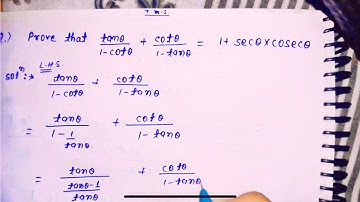 2.) Prove that tanθ/1-cotθ + cotθ/1-tanθ = 1+ secθ×cosecθ
L.H.S.
solⁿ:→ tanθ/1-cotθ + cotθ/1-tanθ
= tanθ/1-1/tanθ + cotθ/1-tanθ
= tanθ/tanθ-1/tanθ + cotθ/1-tanθ